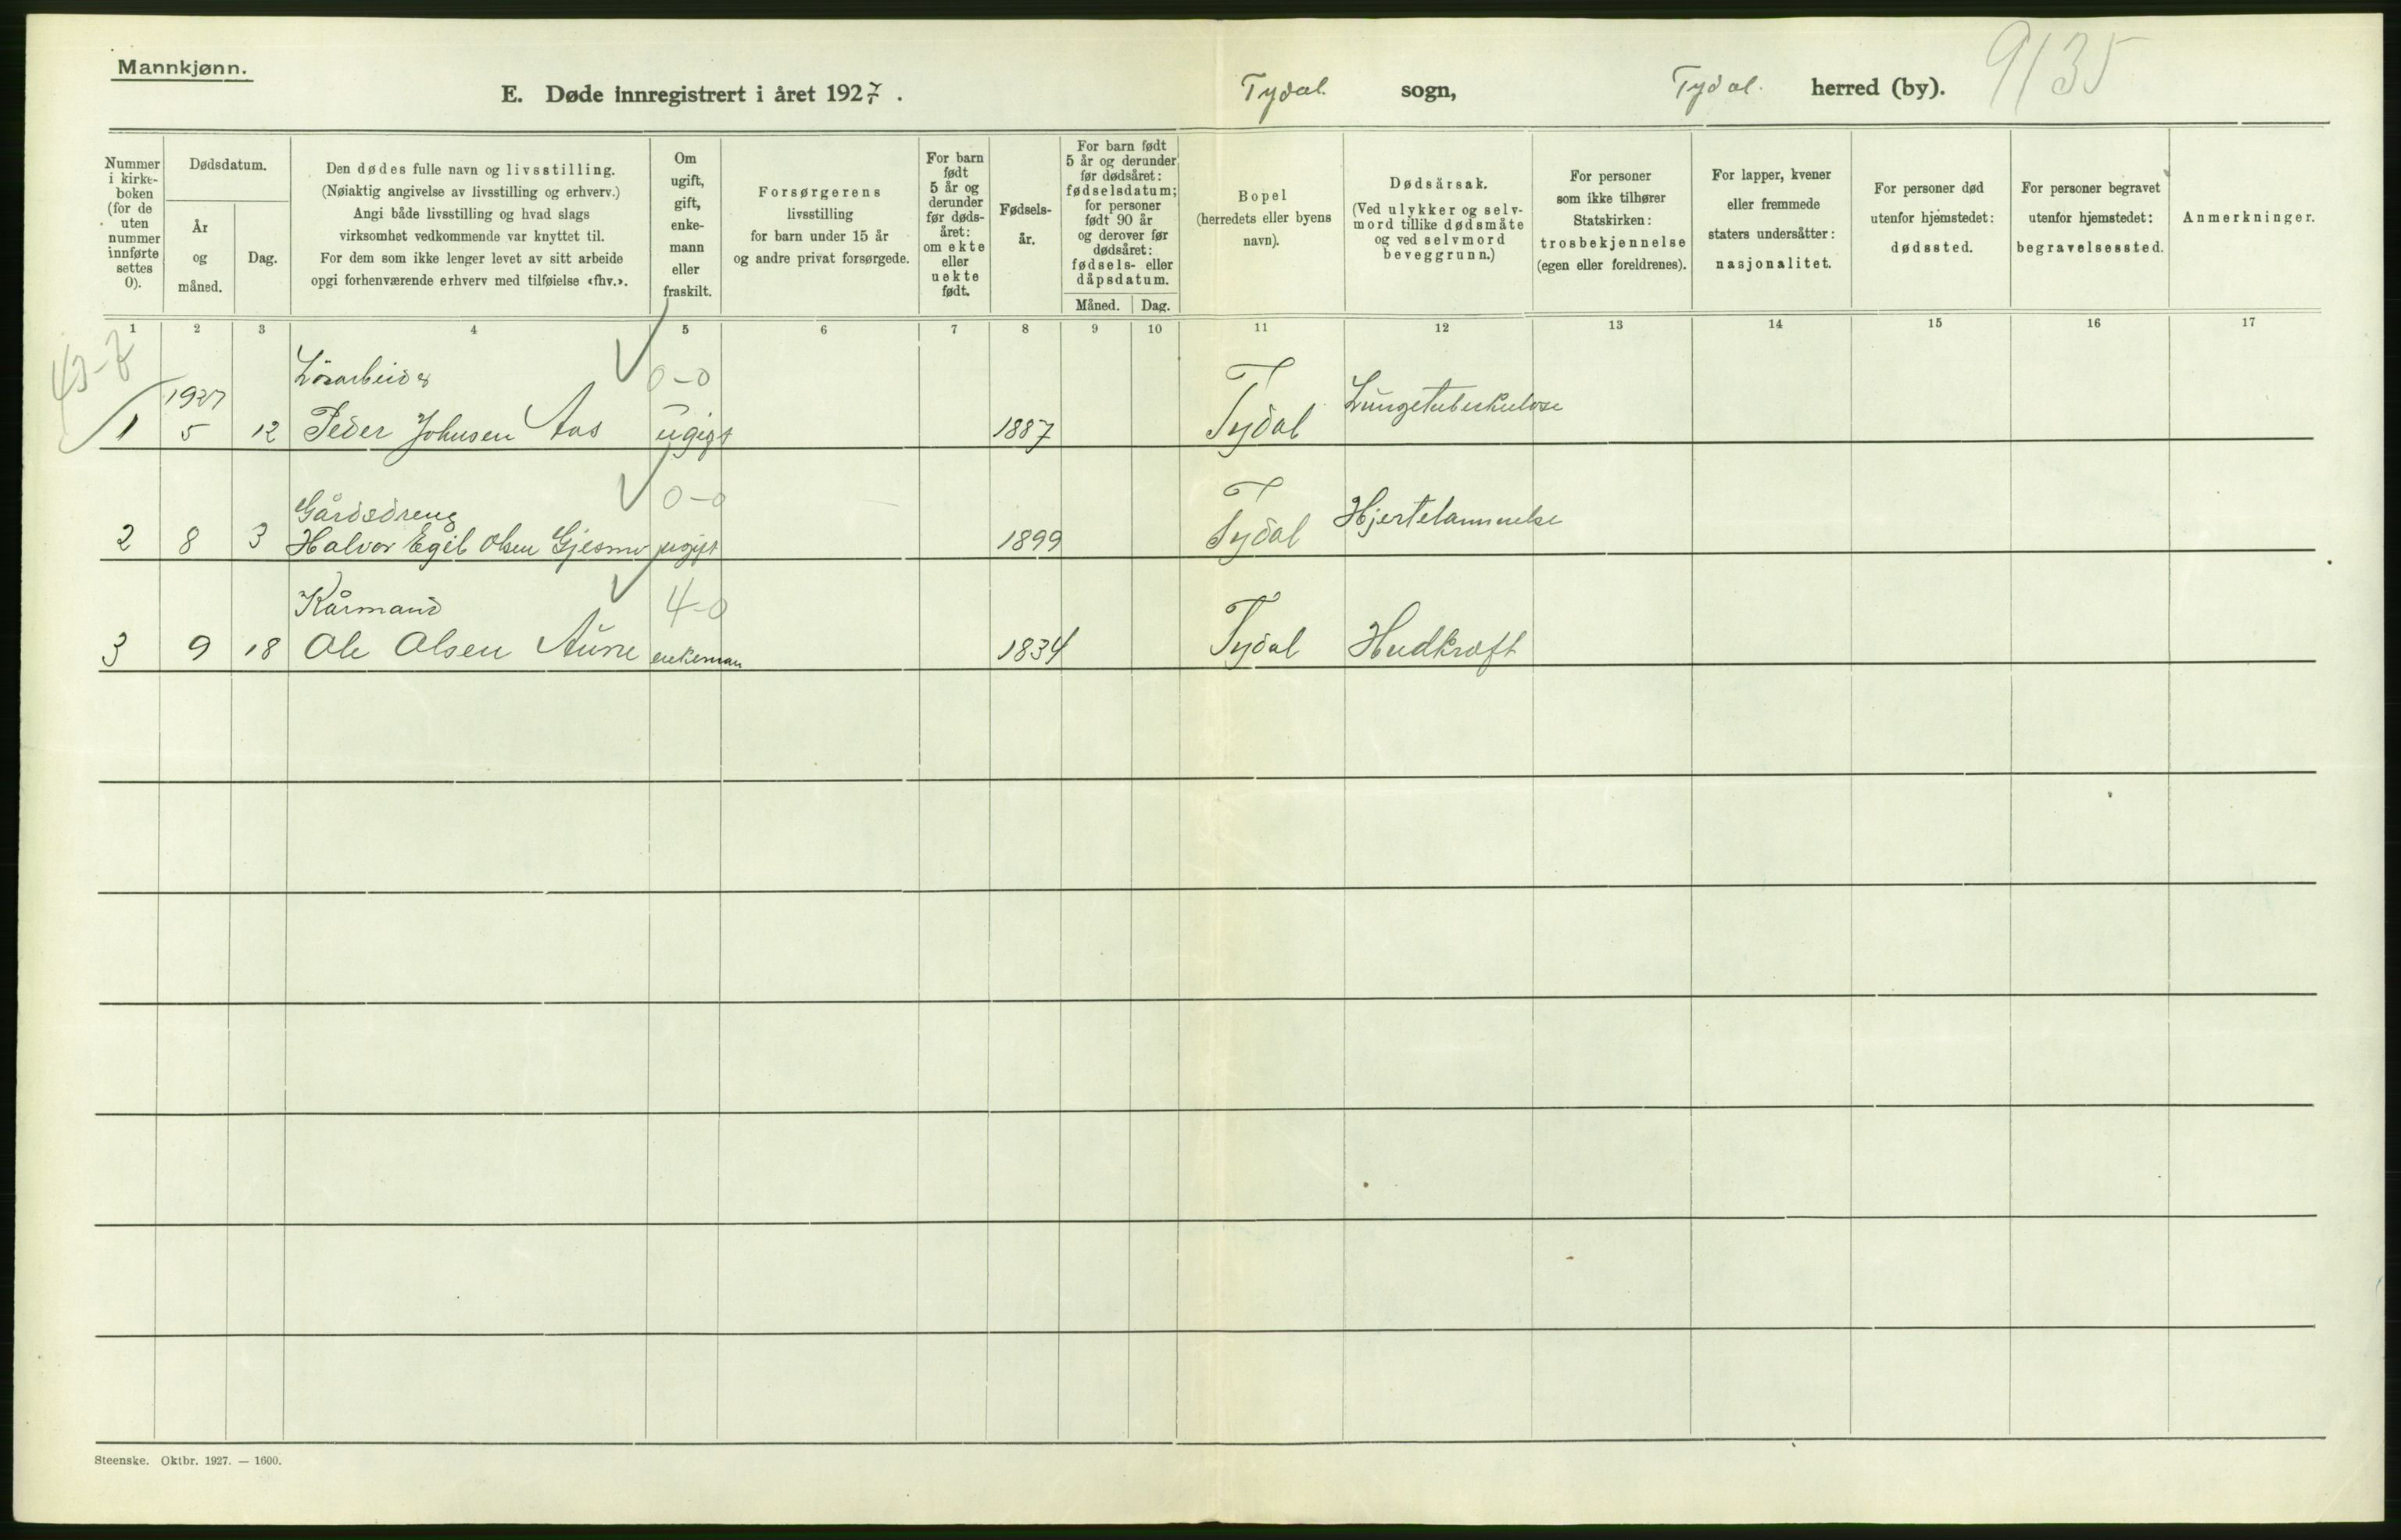 Mannkjønn.
E. Døde innregistrert i året 1927.
Tydal sogn,
Tydal. herred (by).
9135
Nummer i kirke-boken (for de uten nummer innførte settes 0).
Dødsdatum.
År og måned.
Dag.
Den dødes fulle navn og livsstilling.
(Nøiaktig angivelse av livsstilling og erhverv.)
Angi både livsstilling og hvad slags
virksomhet vedkommende var knyttet til.
For dem som ikke lenger levet av sitt arbeide
opgi forhenværende erhverv med tilføielse «fhv.».
Om ugift, gift, enke-mann eller fraskilt.
Forsørgerens
livsstilling
for barn under 15 år
og andre privat forsørgede.
For barn født 5 år og derunder før døds-året: om ekte eller uekte født.
Fødsels-år.
For barn født 5 år og derunder før dødsåret: fødselsdatum; for personer født 90 år og derover før dødsåret: fødsels- eller dåpsdatum.
Måned. Dag.
Bopel
(herredets eller byens
navn).
Dødsårsak.
(Ved ulykker og selv-
mord tillike dødsmåte
og ved selvmord
beveggrunn.)
For personer
som ikke tilhører
Statskirken:
trosbekjennelse
(egen eller foreldrenes).
For lapper, kvener
eller fremmede
staters undersåtter:
nasjonalitet.
For personer død
utenfor hjemstedet:
dødssted.
For personer begravet
utenfor hjemstedet:
begravelsessted.
Anmerkninger.
1 2 3 4 5 6 7 8 9 10 11 12 13 14 15 16 17
Løsarbeider 0-0
1927
1 5 12 Peder Johnsen Aas ugift 1887 Tydal Lungetuberkulose
Gårdsdreng 0-0
2 8 3 Halvor Egil Olsen Gjesmo ugift 1899 Tydal Hjertelammelse
Kårmand 4-0
3 9 18 Ole Olsen Aune enkeman 1834 Tydal Hudkræft
Steenske. Oktbr. 1927. — 1600.